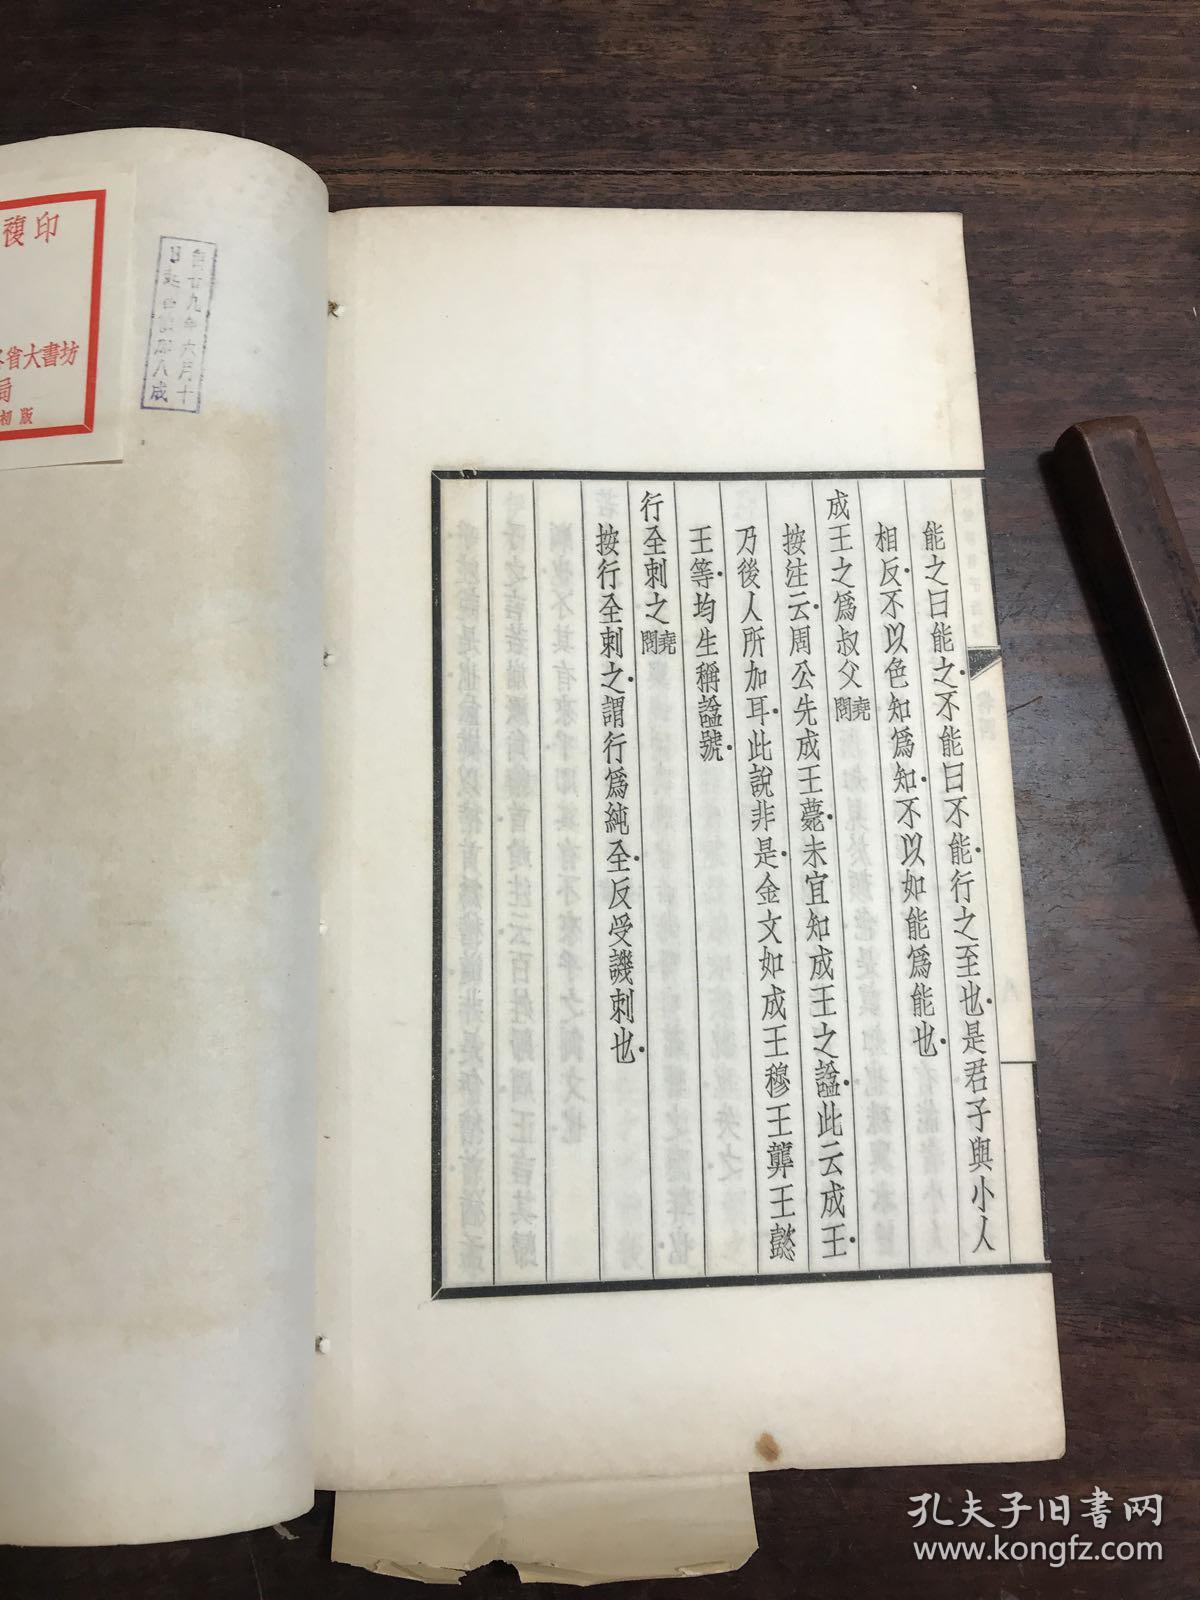 能之曰能之不能曰不能行之至也是君子與小人
相反不以色知爲知不以如能爲能也
成王之爲叔父 堯問
按注云周公先成王薨未宜知成王之諡此云成王
乃後人所加耳此說非是金文如成王穆王龏王懿
王等均生稱諡號
行全刺之 堯問
按行全刺之謂行爲純全反受譏刺也
複印
各省大書坊
局
初版
自廿九年六月十
孔夫子旧书网
www.kongfz.com